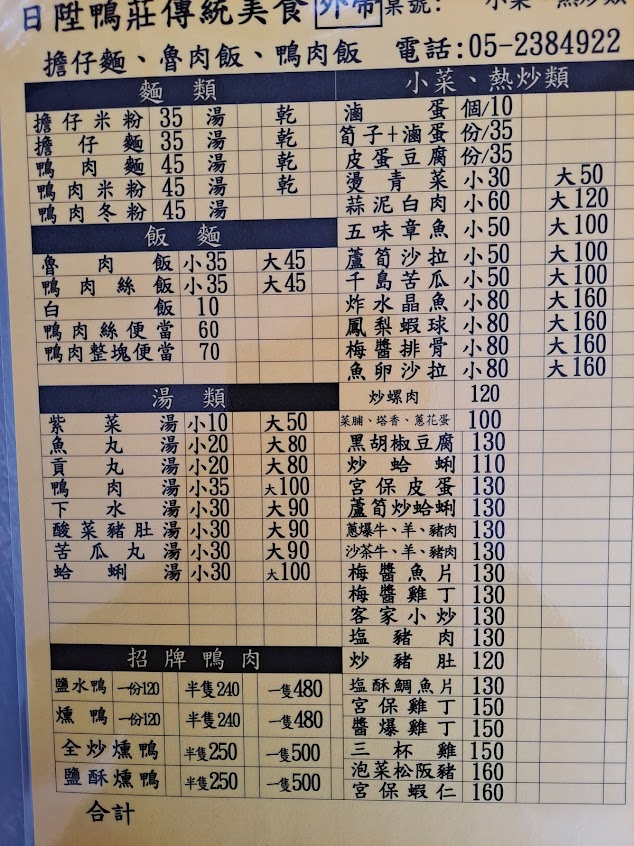 日陞鴨莊傳統美食 外帶 桌號:
小菜、熱炒類
擔仔麵、魯肉飯、鴨肉飯 電話:05-2384922
麵類
擔仔米粉 35 湯 乾
擔仔麵 35 湯 乾
鴨肉麵 45 湯 乾
鴨肉米粉 45 湯 乾
鴨肉冬粉 45 湯
飯麵
魯肉飯 小35 大45
鴨肉絲飯 小35 大45
白飯 10
鴨肉絲便當 60
鴨肉整塊便當 70
湯類
紫菜湯 小10 大50
魚丸湯 小20 大80
貢丸湯 小20 大80
鴨肉湯 小35 大100
下水湯 小30 大90
酸菜豬肚湯 小30 大90
苦瓜丸湯 小30 大90
蛤蜊湯 小30 大100
招牌鴨肉
鹽水鴨 一份120 半隻240 一隻480
燻鴨 一份120 半隻240 一隻480
全炒燻鴨 半隻250 一隻500
鹽酥燻鴨 半隻250 一隻500
合計
小菜、熱炒類
滷蛋 個/10
筍子+滷蛋 份/35
皮蛋豆腐 份/35
燙青菜 小30 大50
蒜泥白肉 小60 大120
五味章魚 小50 大100
蘆筍沙拉 小50 大100
千島苦瓜 小50 大100
炸水晶魚 小80 大160
鳳梨蝦球 小80 大160
梅醬排骨 小80 大160
魚卵沙拉 小80 大160
炒螺肉 120
菜脯、塔香、蔥花蛋 100
黑胡椒豆腐 130
炒蛤蜊 110
宮保皮蛋 130
蘆筍炒蛤蜊 130
蔥爆牛、羊、豬肉 130
沙茶牛、羊、豬肉 130
梅醬魚片 130
梅醬雞丁 130
客家小炒 130
塩豬肉 130
炒豬肚 120
塩酥鯛魚片 130
宮保雞丁 150
醬爆雞丁 150
三杯雞 150
泡菜松阪豬 160
宮保蝦仁 160